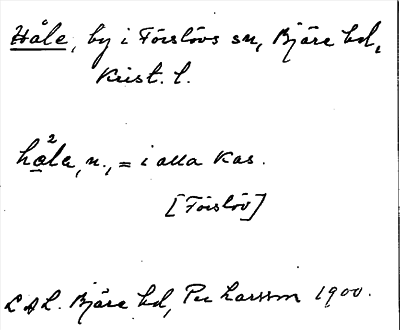 Håle, by i Förslövs sn, Bjäre hd,
Krist. l.
hola, n., = i alla kas.
[Förslöv]
LAL. Bjäre hd, Per Larsson 1900.